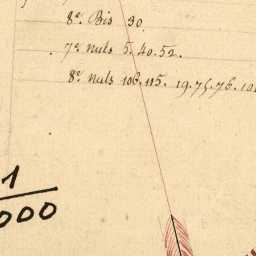 8e. Bis 30.
7e nuls 5.40.52.
8e nuls 108.115. 19.75.76.
1
000